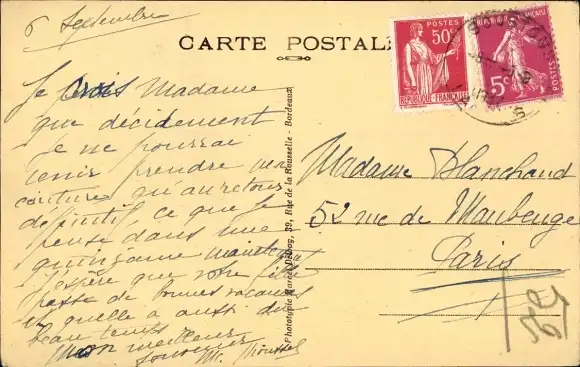 6 Septembre
CARTE POSTALE
POSTES
50c
REPUBLIQUE FRANÇAISE
5c
POSTES
Je crois Madame
que décidément
je ne pourrai
venir prendre mes
qu'au retour
définitif ce que je
pense dans une
quinzaine maintenant
J'espère que votre fille
passe de bonnes vacances
et quelle a aussi du
beau temps
Mon meilleur
souvenir
Phototypie Marcel Delboy, 39, Rue de la Rousselle - Bordeaux
Madame Blanchaud
52 rue de Maubeuge
Paris